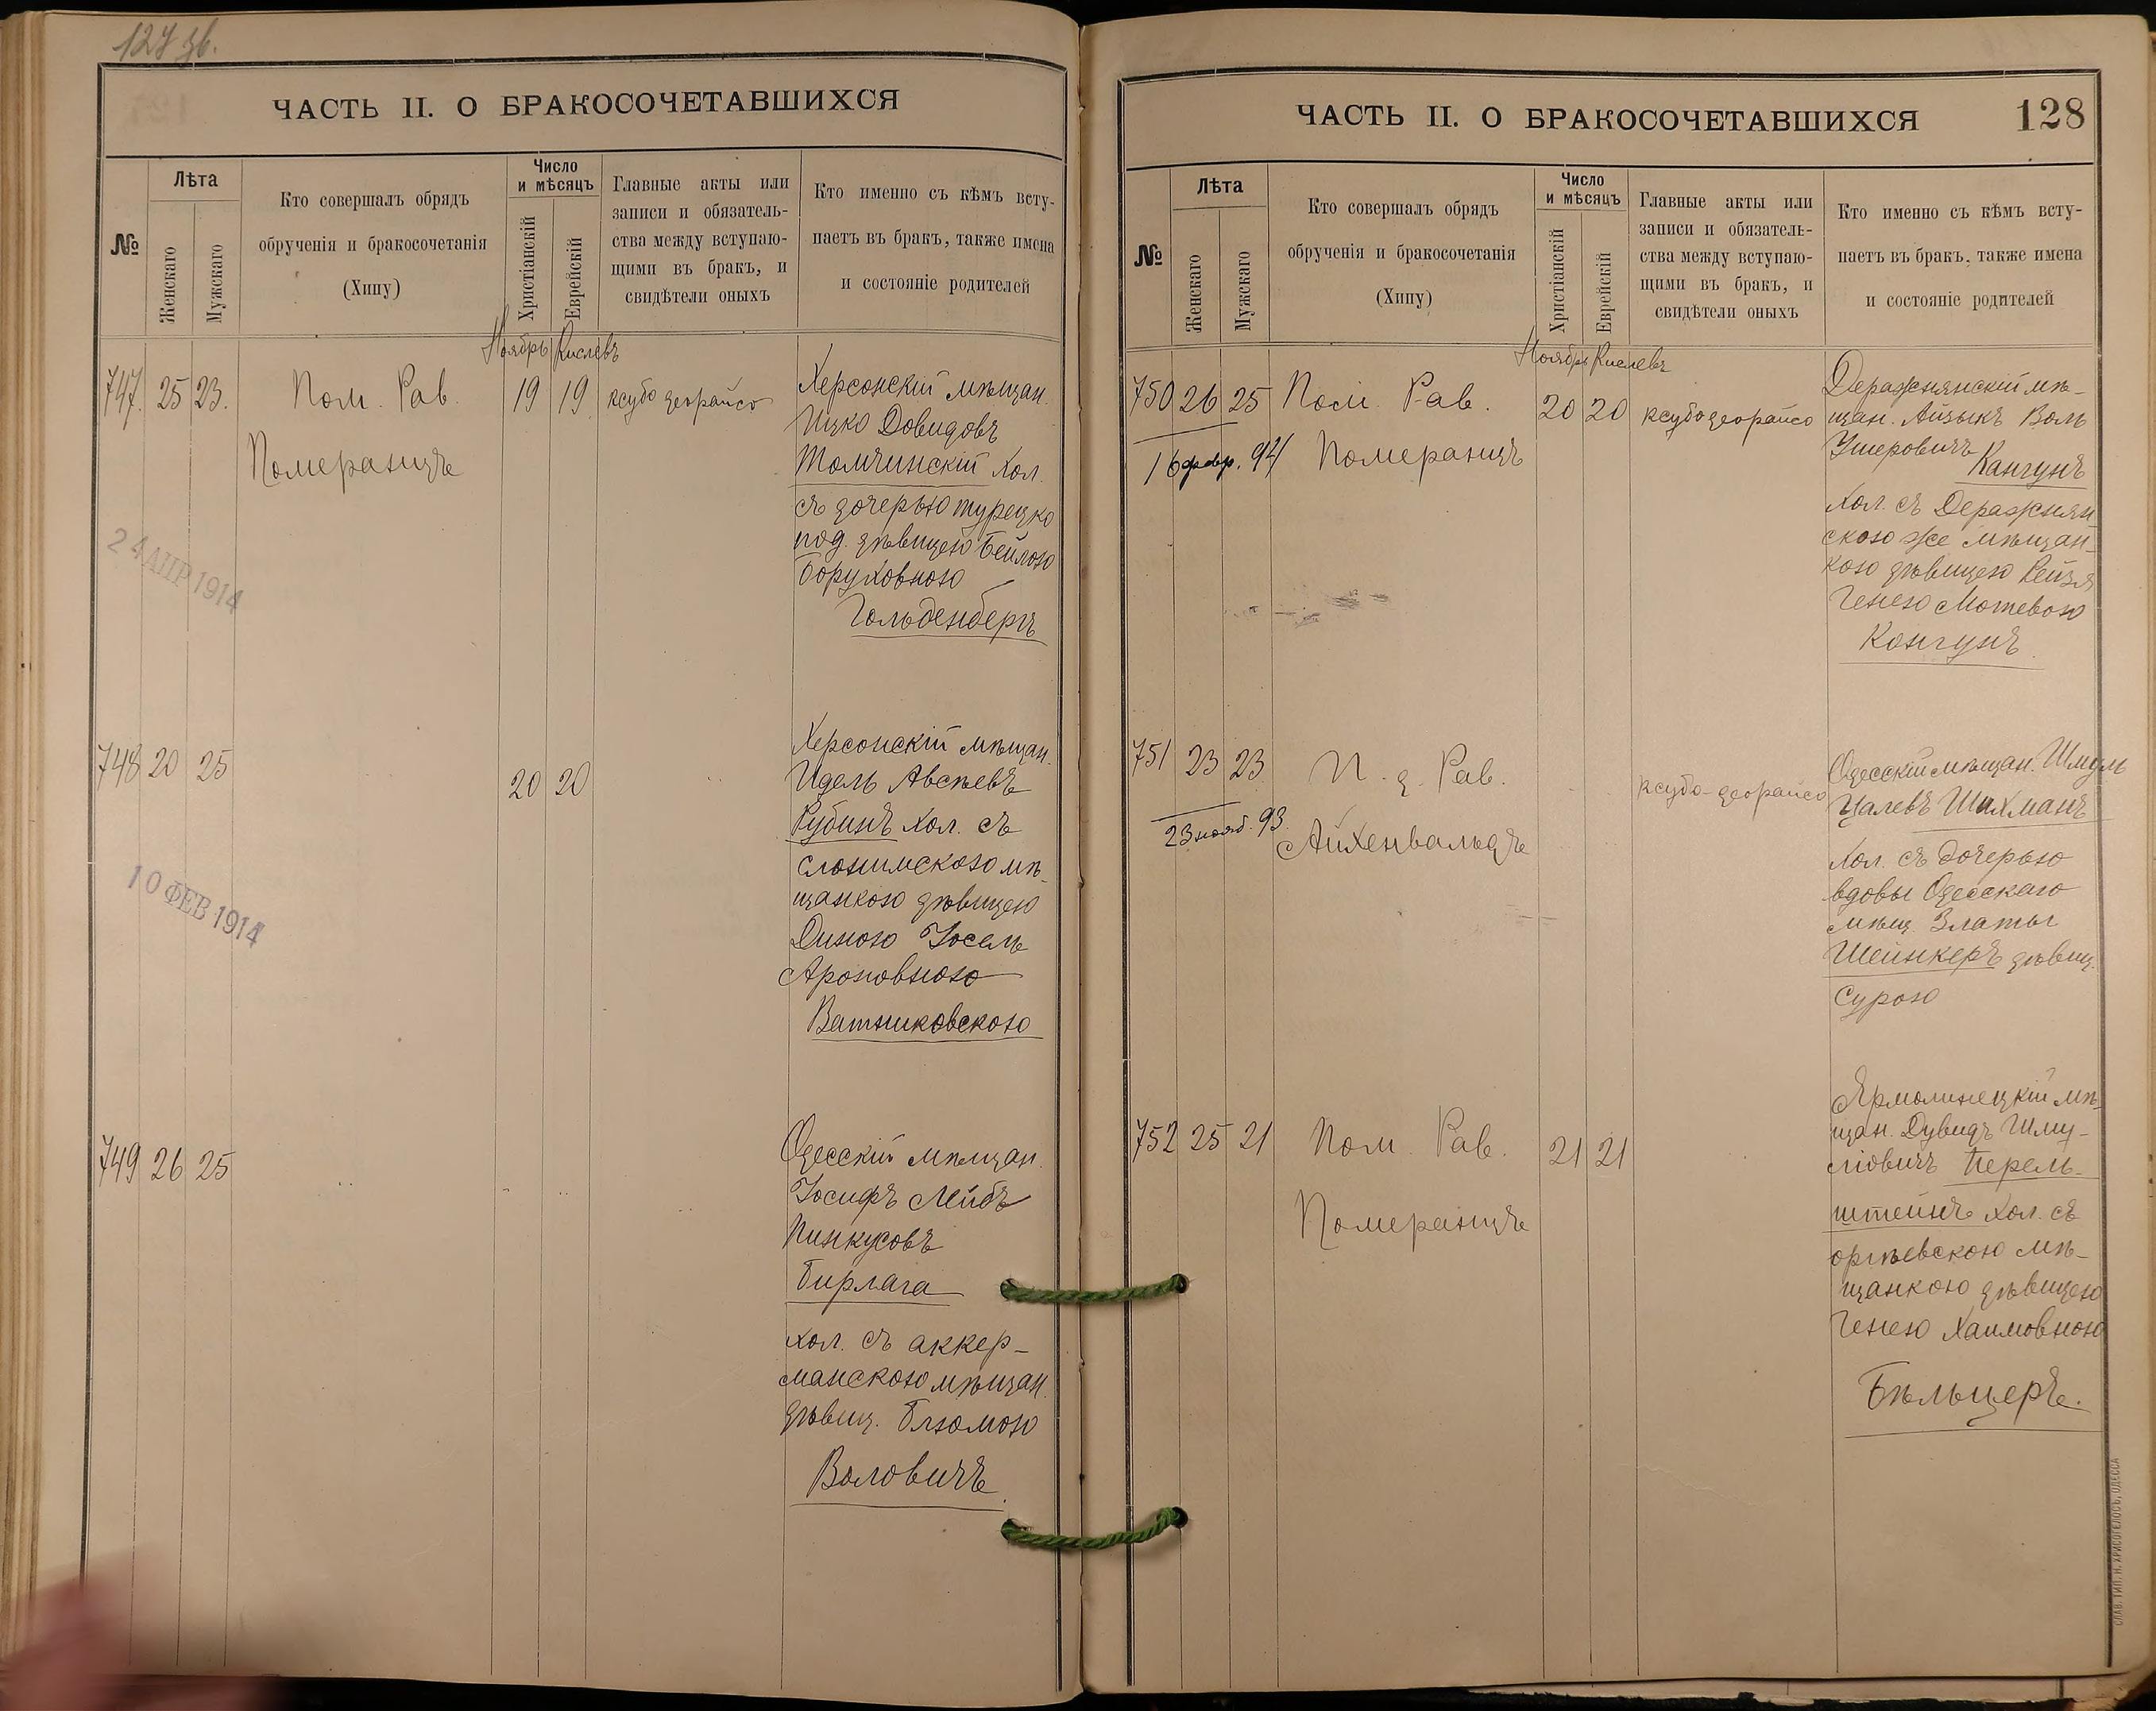 127 зв.
ЧАСТЬ II. О БРАКОСОЧЕТАВШИХСЯ
№
Лѣта
Женскаго
Мужскаго
Кто совершалъ обрядъ
обрученія и бракосочетанія
(Хипу)
Число
и мѣсяцъ
Христіанскій
Еврейскій
Главные акты или
записи и обязатель-
ства между вступаю-
щими въ бракъ, и
свидѣтели оныхъ
Кто именно съ кѣмъ всту-
паетъ въ бракъ, также имена
и состояніе родителей
Ноябрь Кислевъ
747. 25 23. Пом. Рав. 19 19 ксубо деорайсо
Померанцъ
Херсонскій мѣщан.
Ицко Довидовъ
Томчинскій хол.
съ дочерью турецко
под. дѣвицею Бейлою
Боруховною
Гольденбергъ
24 АПР 1914
748 20 25 20 20
Херсонскій мѣщан.
Идель Авсѣевъ
Рубинъ хол. съ
слонимскою мѣ-
щанкою дѣвицею
Диною Іосель
Ароновною
Ватниковскою
10 ФЕВ 1914
749 26 25
Одесскій мѣщан.
Іосифъ Лейбъ
Пинкусовъ
Бирлага
хол. съ аккер-
манскою мѣщан.
дѣвиц. Блюмою
Воловичъ.
ЧАСТЬ II. О БРАКОСОЧЕТАВШИХСЯ 128
№
Лѣта
Женскаго
Мужскаго
Кто совершалъ обрядъ
обрученія и бракосочетанія
(Хипу)
Число
и мѣсяцъ
Христіанскій
Еврейскій
Главные акты или
записи и обязатель-
ства между вступаю-
щими въ бракъ, и
свидѣтели оныхъ
Кто именно съ кѣмъ всту-
паетъ въ бракъ, также имена
и состояніе родителей
Ноябрь Кислевъ
750 26 25 Пом. Рав. 20 20 ксубо деорайсо
16 февр. 94 Померанцъ
Деражнянскій мѣ-
щан. Айзыкъ Воль
Ушеровичъ
Кангунъ
хол. съ Деражнян
скою же мѣщан-
кою дѣвицею Рейзя
Генею Мотевою
Конгунъ.
751 23 23 И. д. Рав. ксубо-деорайсо
23 нояб. 93. Айхенвальдъ
Одесскій мѣщан. Шмуль
Цалевъ Шихманъ
хол. съ дочерью
вдовы Одесскаго
мѣщ. Златы
Шейнкеръ дѣвиц.
Сурою
752 25 21 Пом. Рав. 21 21
Померанцъ
Ярмолинецкій мѣ-
щан. Дувидъ Шму-
ліовичъ Перель-
штейнъ хол. съ
оргѣевскою мѣ-
щанкою дѣвицею
Генею Хаимовною
Бѣльцеръ.
СЛАВ. ТИП. Н. ХРИСОГЕЛОСЪ, ОДЕССА